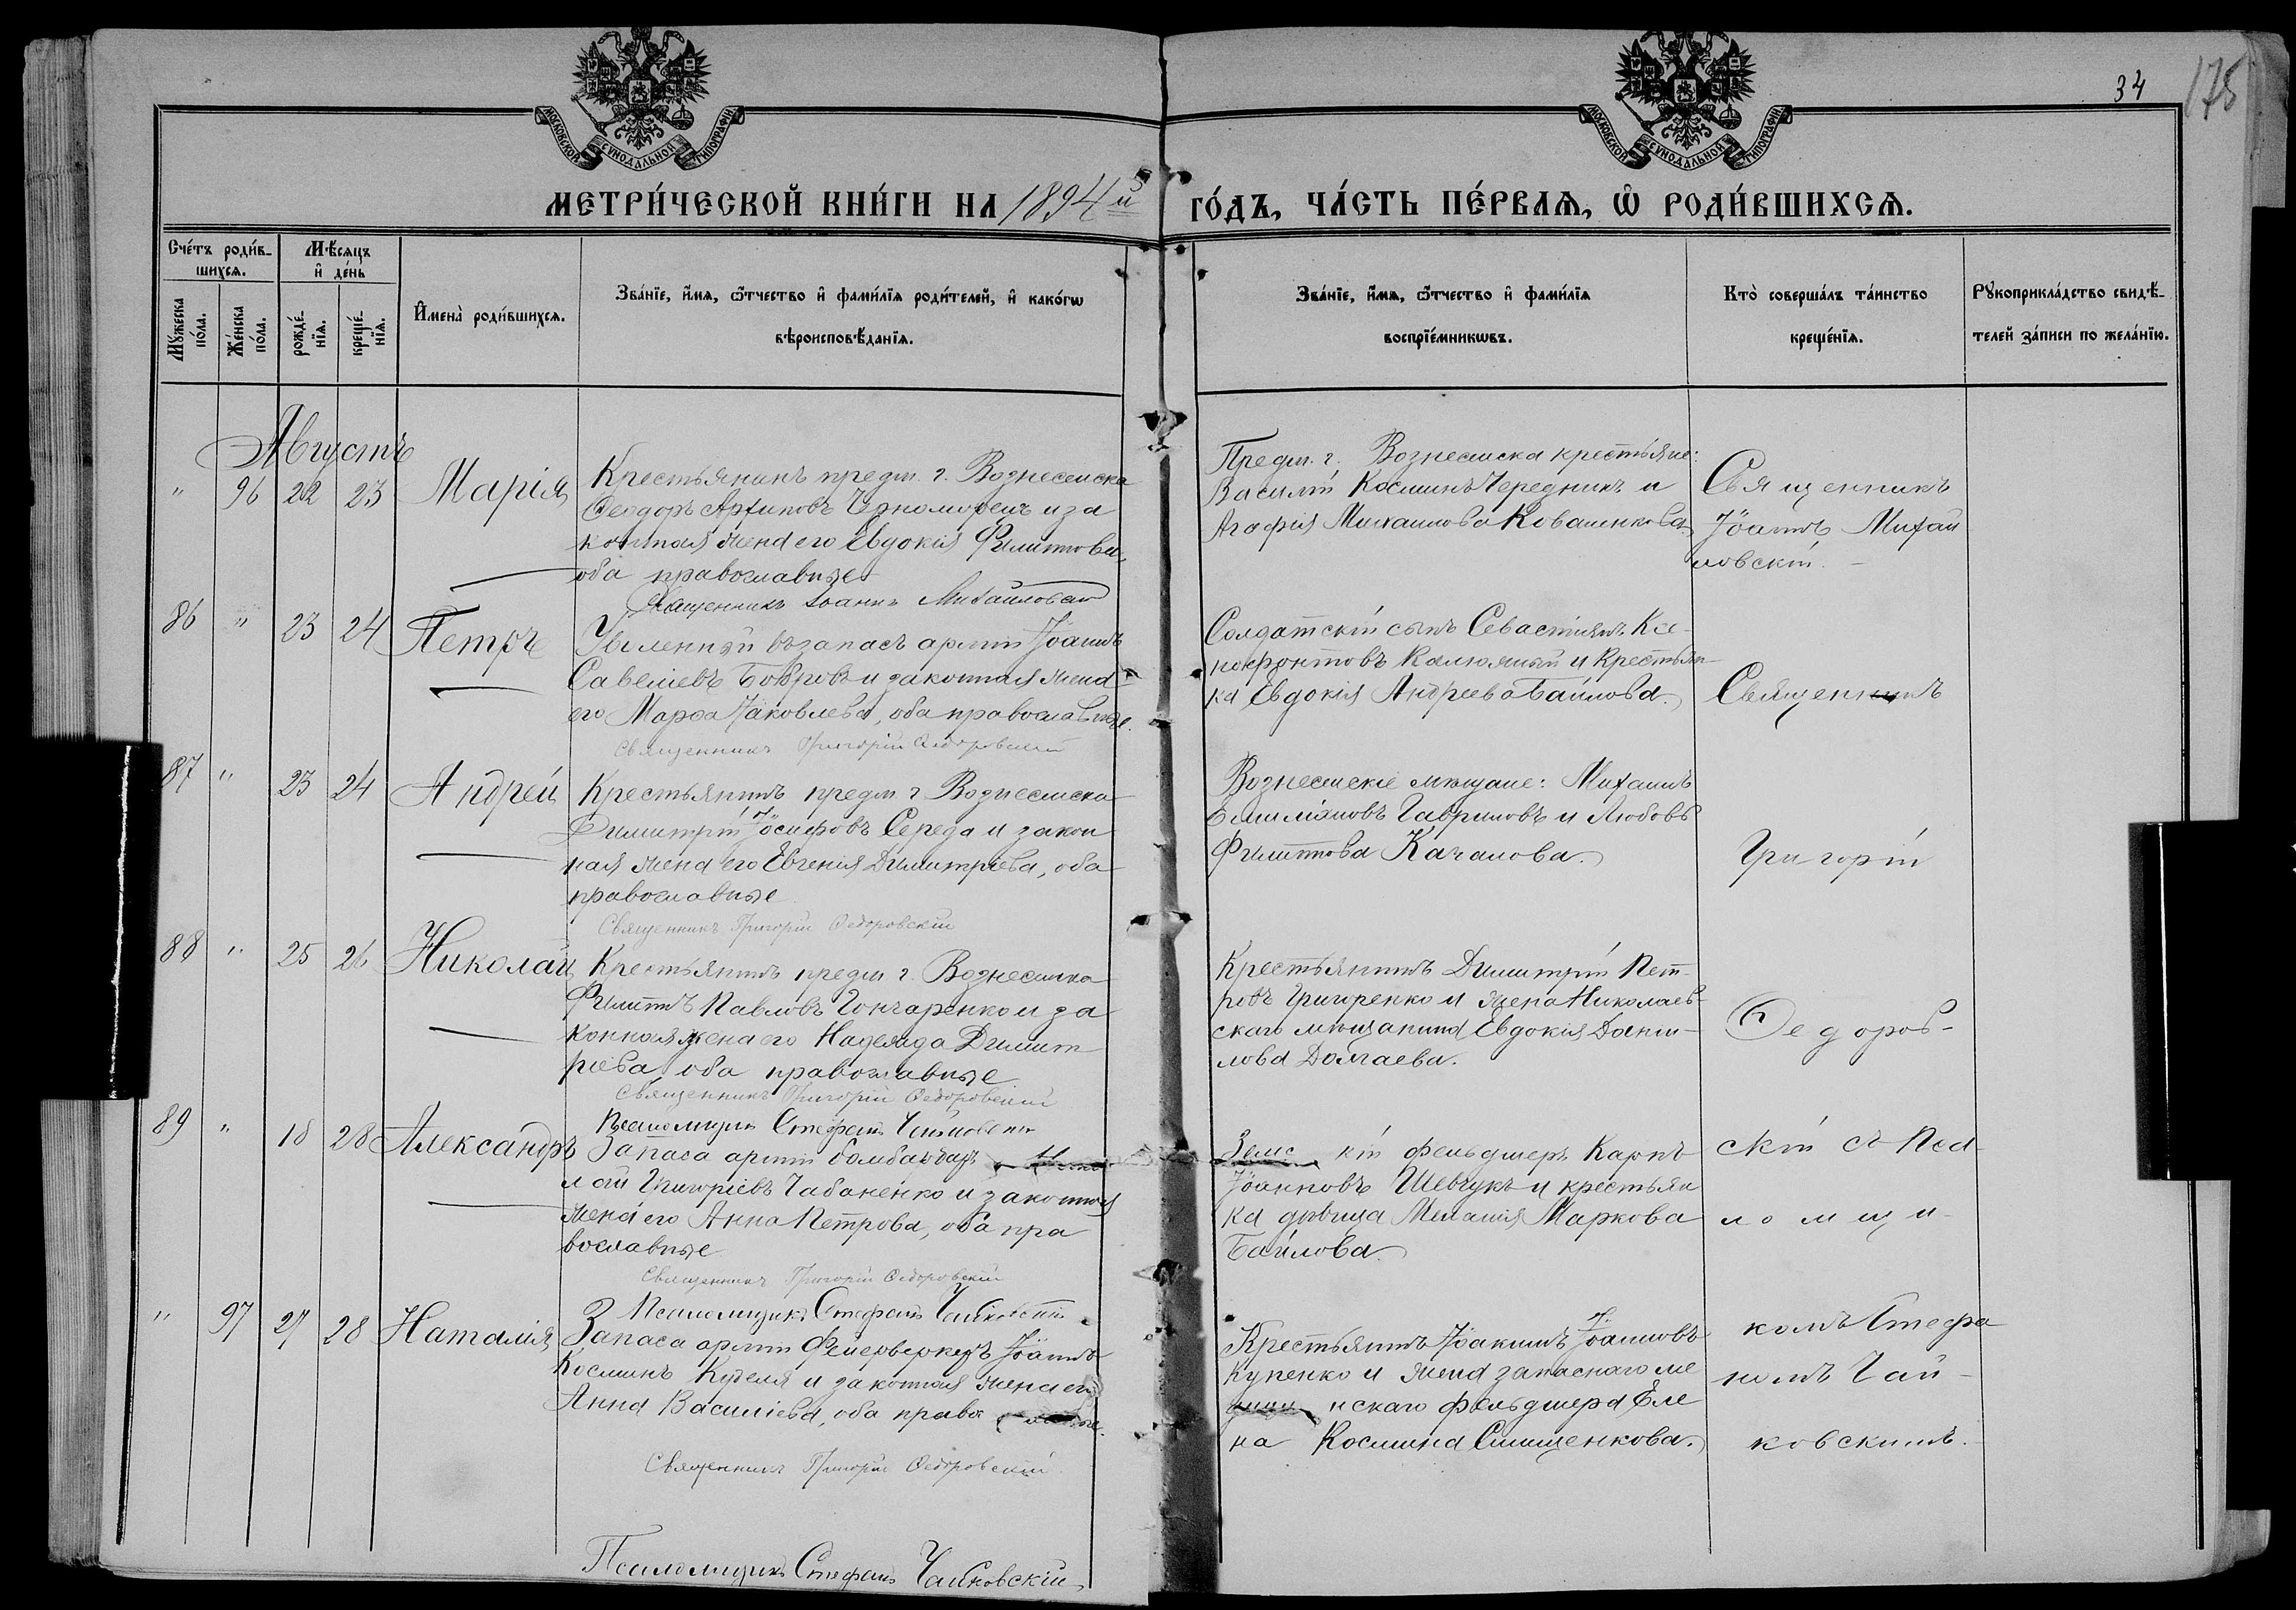 34
175
МОСКОВСКОЙ СѴНОДАЛЬНОЙ ТИПОГРАФІИ
МОСКОВСКОЙ СѴНОДАЛЬНОЙ ТИПОГРАФІИ
МЕТРИ́ЧЕСКОЙ КНИ́ГИ НА 1894й ГО́ДЪ, ЧА́СТЬ ПЕ́РВАѦ, Ѽ РОДИ́ВШИХСѦ.
Сче́тъ роди́в-
шихсѧ.
Мѣ́сѧцъ
и҆ де́нь
Мꙋ́жеска
по́ла.
Же́нска
по́ла.
рожде́-
нїѧ.
креще́-
нїѧ.
И҆мена̀ роди́вшихсѧ.
Зва́нїе, и҆́мѧ, ѻ҆́тчество и҆ фами́лїѧ роди́телей, и҆ како́гѡ
вѣроисповѣ́данїѧ.
Зва́нїе, и҆́мѧ, ѻ҆́тчество и҆ фами́лїѧ
воспрїе́мникѡвъ.
Кто̀ соверша́лъ та́инство
креще́нїѧ.
Рꙋкоприкла́дство свидѣ́-
телей за́писи по жела́нїю.
Августъ
" 96 22 23 Марія
Крестьянинъ предм. г. Вознесенска
Ѳеодоръ Архиповъ Черноморецъ и за
конная жена его Евдокія Филиппова,
оба православные
Священникъ Іоаннъ Михайловскій
Предм. г. Вознесенска крестьяне:
Василій Косминъ Чередникъ и
Агафія Михаилова Коваленкова
Священникъ
Іоаннъ Михай
ловскій.
86 " 23 24 Петръ
Уволенный въ запасъ арміи Іоаннъ
Савеліевъ Бобровъ и законная жена
его Марѳа Іаковлева, оба православные.
Священникъ Григорій Ѳедоровскій
Солдатскій сынъ Севастіянъ Ксе-
нофонтовъ Калюжный и крестьян-
ка Евдокія Андреева Байлова.
Священникъ
87 " 23 24 Андрей
Крестьянинъ предм. г. Вознесенска
Димитрій Іосифовъ Середа и закон
ная жена его Евгенія Димитріева, оба
православные
Священникъ Григорій Ѳедоровскій
Вознесенскіе мѣщане: Михаилъ
Емиліановъ Гавриловъ и Любовь
Филиппова Качалова.
Григорій
88 " 25 26 Николай
Крестьянинъ предм. г. Вознесенска
Филиппъ Павловъ Гончаренко и за
конная жена его Надежда Димит
ріева оба православные
Священникъ Григорій Ѳедоровскій
Псаломщикъ Стефанъ Чайковскій
Крестьянинъ Димитрій Пет-
ровъ Григоренко и жена Николаев-
скаго мѣщанина Евдокія Дани-
лова Долгаева.
Ѳедоров-
89 " 18 28 Александръ
Запаса арміи бомбардиръ Нико
лай Григоріевъ Чабаненко и законная
жена его Анна Петрова, оба пра
вославные
Священникъ Григорій Ѳедоровскій
Псаломщикъ Стефанъ Чайковскій
Земс кій фельдшеръ Карпъ
Іоанновъ Шевчукъ и крестьян
ка дѣвица Меланія Маркова
Байлова.
скій съ Пса
ломщи-
" 97 27 28 Наталія
Запаса арміи Фейерверкеръ Іоаннъ
Косминъ Куделя и законная жена его
Анна Василіева, оба право славные.
Священникъ Григорій Ѳедоровскій
Псаломщикъ Стефанъ Чайковскій
Крестьянинъ Іоакимъ Іоанновъ
Купенко и жена запаснаго ме
дици нскаго фельдшера Еле
на Космина Слищенкова.
комъ Стефа
номъ Чай-
ковскимъ.